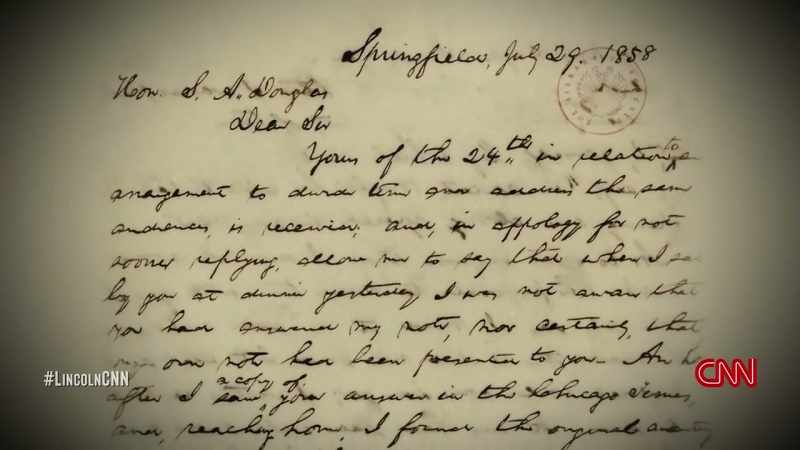 Springfield, July 29. 1858
Hon. S. A. Douglas
Dear Sir
Yours of the 24th. in relation to an
arrangement to divide time and address the same
audiences, is received; and, in appology for not
sooner replying, allow me to say that when I sat
by you at dinner yesterday I was not aware that
you had answered my note, nor certainly, that
my own note had been presented to you. An
after I saw a copy of your answer in the Chicago Times,
and, reaching home, I found the original awaiting
#LINCOLNCNN
CNN